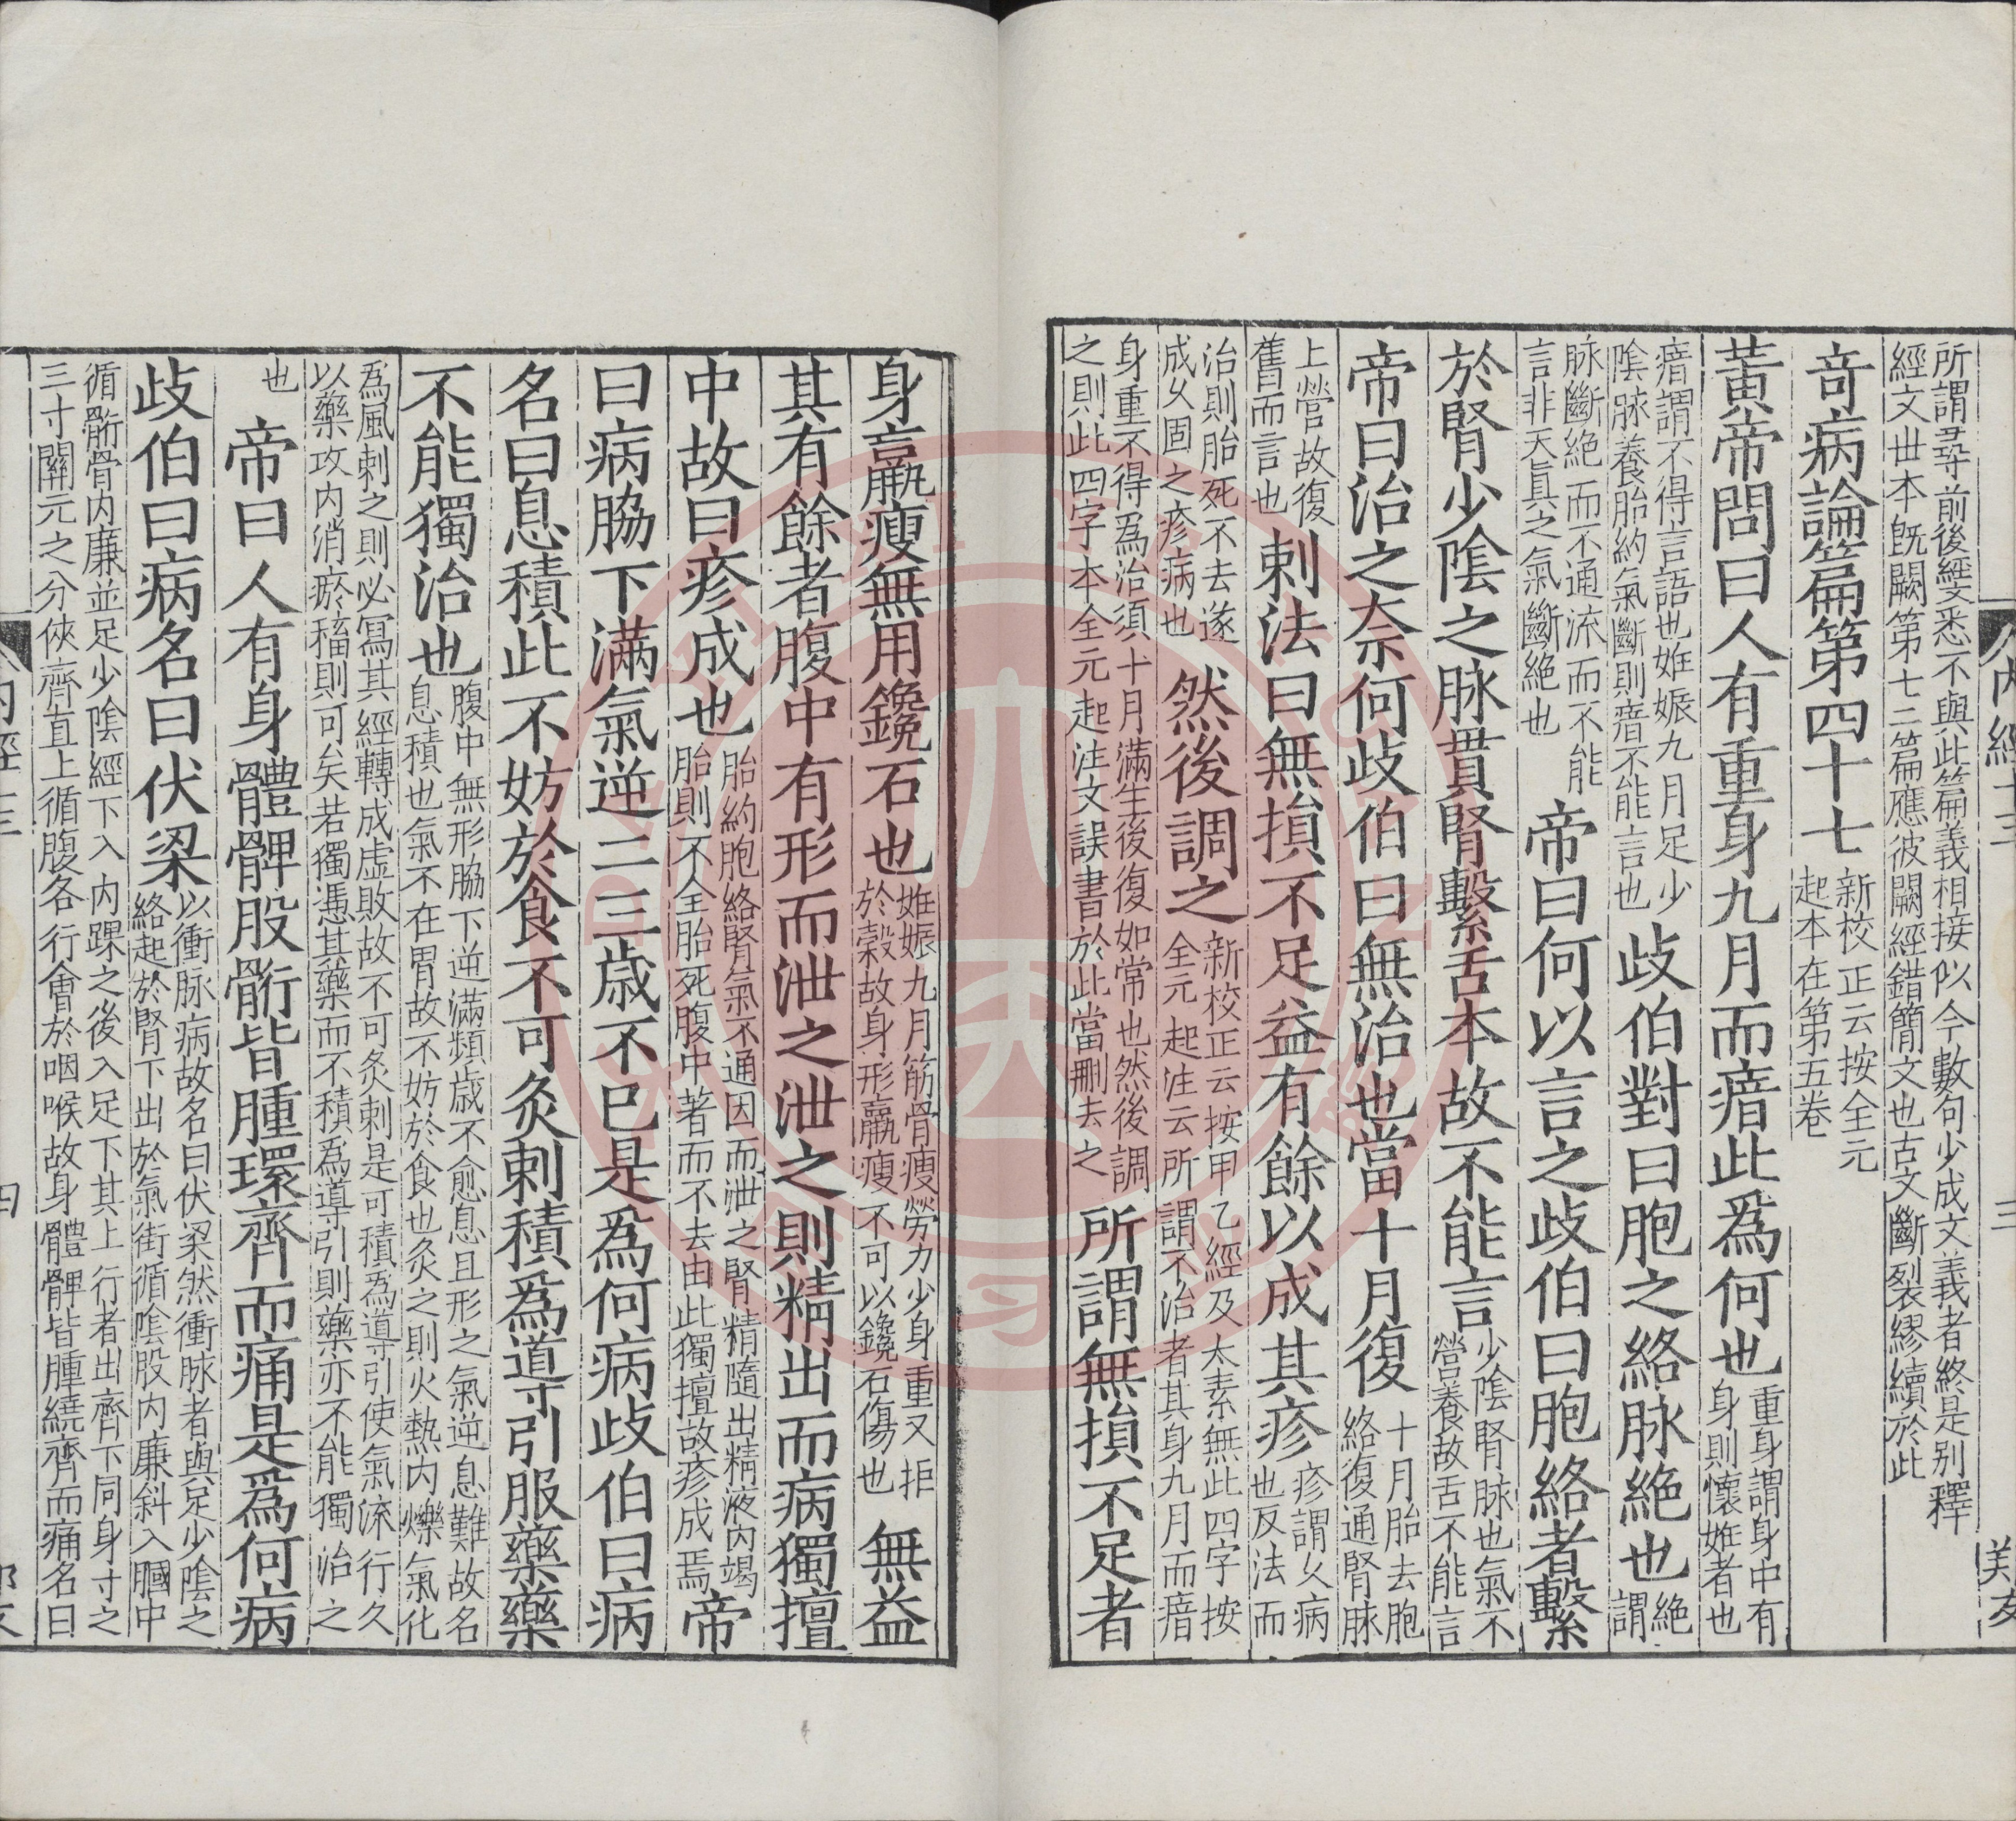 所謂尋前後經文悉不與此篇義相接似今數句少成文義者終是别釋
經文丗本旣闕第七二篇應彼闕經錯簡文也古文斷裂繆續於此
竒病論篇第四十七
新校正云按全元
起本在第五卷
黃帝問曰人有重身九月而瘖此爲何也
重身謂身中有
身則懷姙者也
瘖謂不得言語也姙娠九月足少
隂脉養胎約氣斷則瘖不能言也
歧伯對曰胞之絡脉絶也
絶
謂
脉斷絶而不通流而不能
言非天真之氣斷絶也
帝曰何以言之歧伯曰胞絡者繫
於腎少隂之脉貫腎繫舌本故不能言
少隂腎脉也氣不
營養故舌不能言
帝曰治之奈何歧伯曰無治也當十月復
十月胎去胞
絡復通腎脉
上營故復
舊而言也
刺法曰無損不足益有餘以成其疹
疹謂乆病
也反法而
治則胎死不去遂
成乆固之疹病也
然後調之
新校正云按甲乙經及太素無此四字按
全元起注云所謂不治者其身九月而瘖
身重不得爲治須十月滿生後復如常也然後調
之則此四字本全元起注文誤書於此當刪去之
所謂無損不足者
身羸瘦無用鑱石也
姙娠九月筋骨瘦勞力少身重又拒
於穀故身形羸瘦不可以鑱石傷也
無益
其有餘者腹中有形而泄之泄之則精出而病獨擅
中故曰疹成也
胎約胞絡腎氣不通因而泄之腎精隨出精液内竭
胎則不全胎死腹中著而不去由此獨擅故疹成焉
帝
曰病脇下滿氣逆二三歳不已是爲何病歧伯曰病
名曰息積此不妨於食不可灸刺積爲導引服藥藥
不能獨治也
腹中無形脇下逆滿頻歳不愈息且形之氣逆息難故名
息積也氣不在胃故不妨於食也灸之則火熱内爍氣化
爲風刺之則必寫其經轉成虛敗故不可灸刺是可積爲導引使氣流行久
以藥攻内消瘀稸則可矣若獨憑其藥而不積爲導引則藥亦不能獨治之
也
帝曰人有身體髀股䯒皆腫環齊而痛是爲何病
歧伯曰病名曰伏梁
以衝脉病故名曰伏梁然衝脉者與足少隂之
絡起於腎下出於氣街循隂股内廉斜入膕中
循䯒骨内廉並足少隂經下入内踝之後入足下其上行者出齊下同身寸之
三寸關元之分俠齊直上循腹各行會於咽喉故身體髀皆腫繞齊而痛名曰